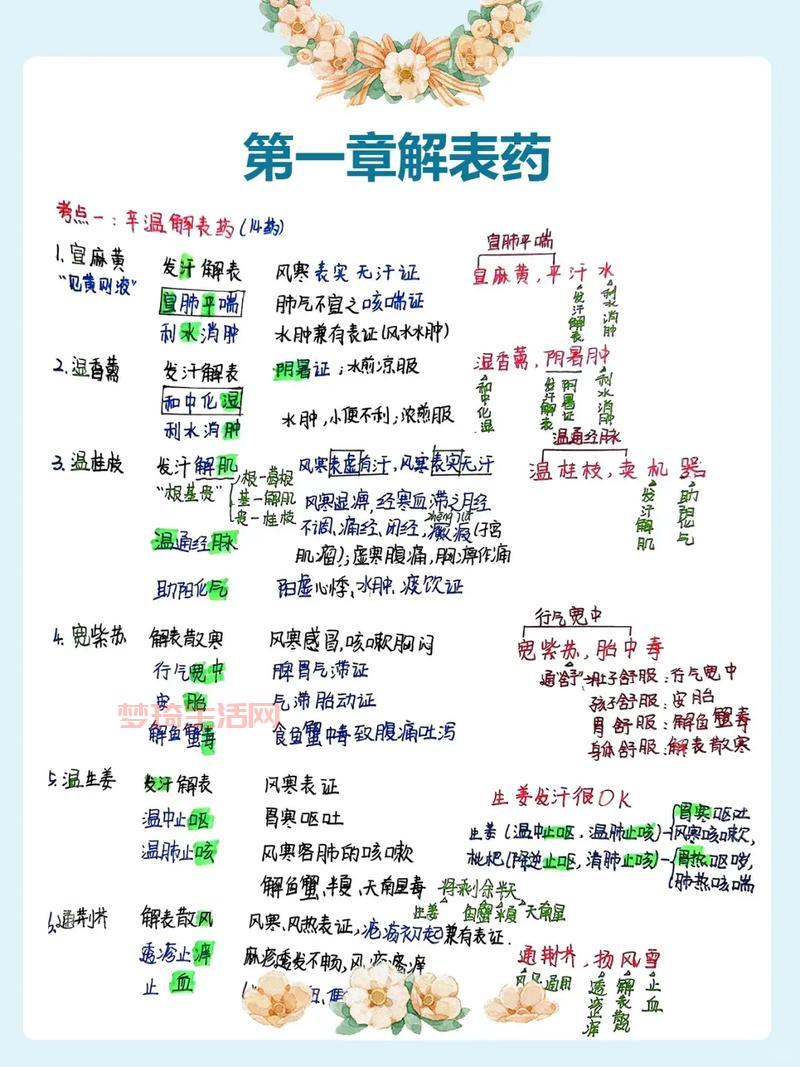 第一章解表药
考点一：辛温解表药(14药)
1.宣麻黄 发汗解表 风寒表实无汗证
"见黄则液" 宣肺平喘 肺气不宣之咳喘证
利水消肿 水肿兼有表证(风水水肿)
宣肺平喘
宣麻黄，平汗水
发汗解表
利水消肿
2.温香薷 发汗解表 阴暑证；水煎凉服
和中化湿
利水消肿 水肿，小便不利；浓煎服
温香薷，阴暑肿
和中化湿
发汗解表
阴暑证
利水消肿
3.温桂枝 发汗解肌 风寒表虚有汗，风寒表实无汗
"根基贵" 根一葛根
基一解肌
贵一桂枝
风寒湿痹，经寒血滞之月经
不调、痛经、闭经、癥瘕(子宫
肌瘤)；虚寒腹痛，胸痹作痛
温通经脉
助阳化气 阳虚心悸、水肿、痰饮证
温通经脉
温桂枝，卖机器
发汗解肌
助阳化气
4.宽紫苏 解表散寒 风寒感冒，咳嗽胸闷
行气宽中 脾胃气滞证
安胎 气滞胎动证
解鱼蟹毒 食鱼蟹中毒致腹痛吐泻
行气宽中
宽紫苏，胎中毒
通舒 肚子舒服：行气宽中
孩子舒服：安胎
胃舒服：解鱼蟹毒
身体舒服：解表散寒
梦琦生活网
5.温生姜 发汗解表 风寒表证
温中止呕 胃寒呕吐
温肺止咳 风寒客肺的咳嗽
解鱼蟹、半夏、天南星毒
生姜发汗很OK
生姜(温中止呕，温肺止咳)—胃寒呕吐
风寒咳嗽
枇杷(降逆止呕，清肺止咳)—胃热呕哕，
肺热咳喘
将剩余半天
生姜 鱼蟹 半夏 天南星
通荆芥 解表散风 风寒、风热表证，疮疡初起兼有表证.
透疹止痒 麻疹透发不畅，风疹瘙痒
止血
通荆芥，扬风雪
透疹止痒
解表散风
止血